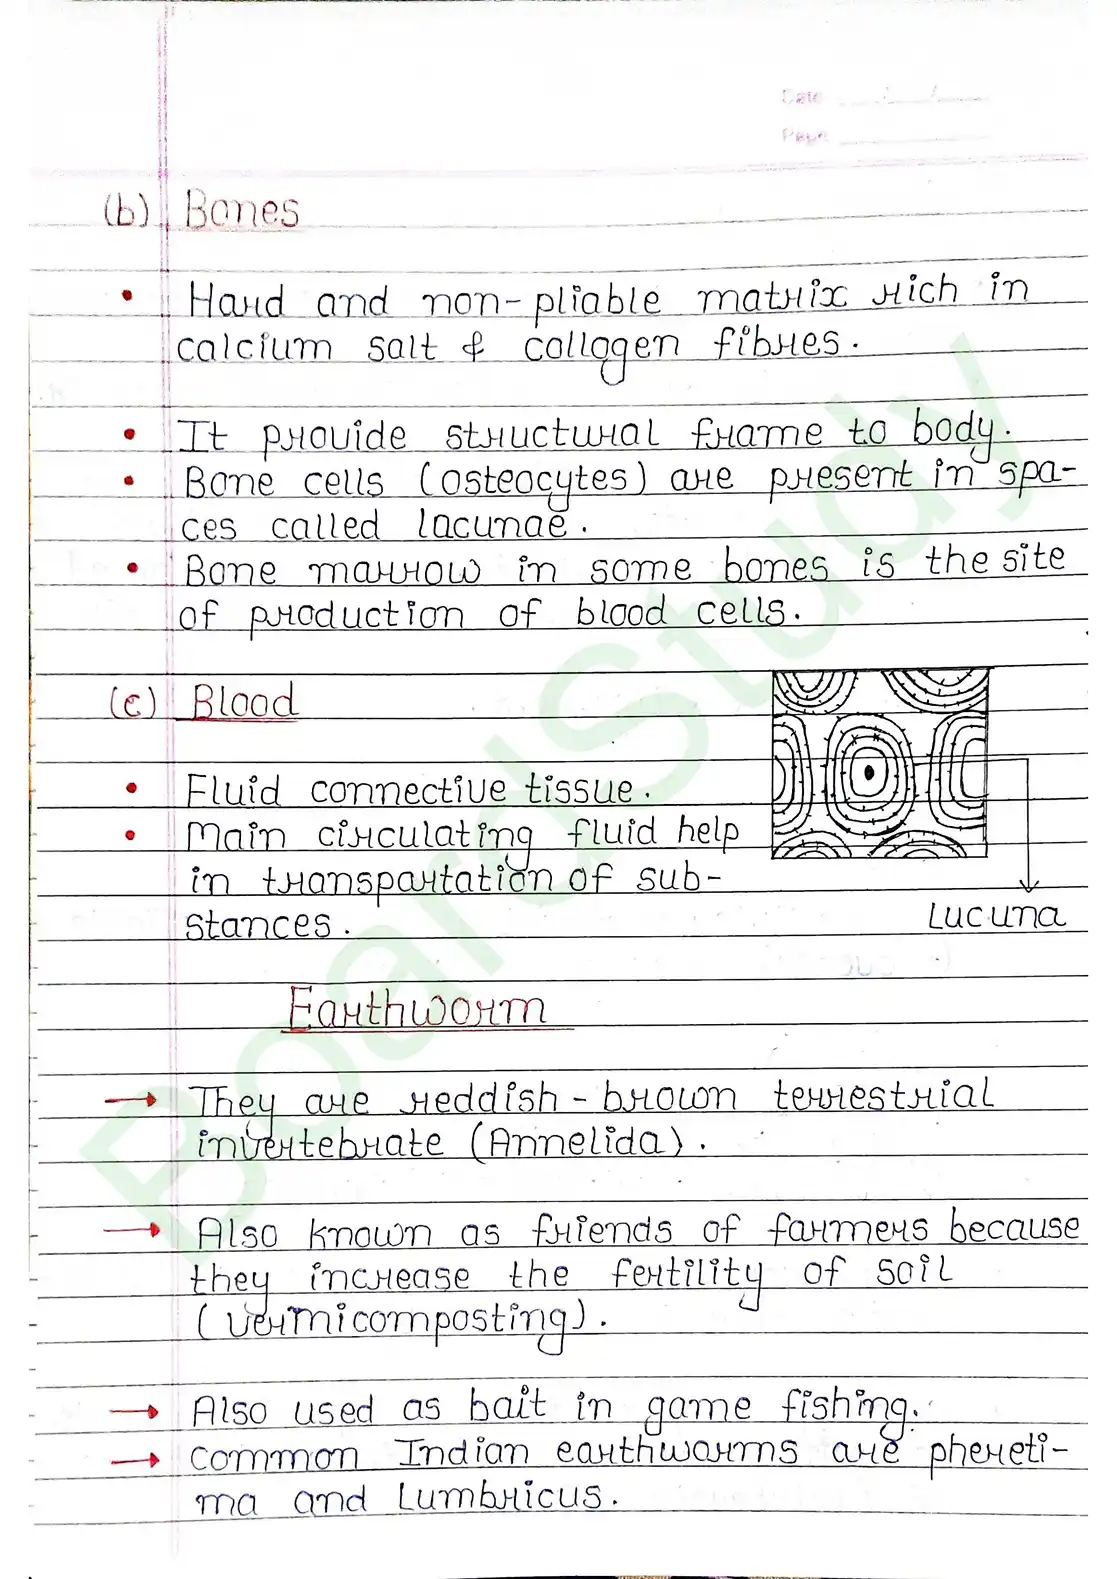 Date
Page
(b) Bones
• Hard and non-pliable matrix rich in
calcium salt & collagen fibres.
• It provide structural frame to body.
• Bone cells (osteocytes) are present in spa-
ces called lacunae.
• Bone marrow in some bones is the site
of production of blood cells.
(c) Blood
• Fluid connective tissue.
• Main circulating fluid help
in transportation of sub-
stances.
Lucuna
Earthworm
→ They are reddish-brown terrestrial
invertebrate (Annelida).
→ Also known as friends of farmers because
they increase the fertility of soil
(vermicomposting).
→ Also used as bait in game fishing.
→ Common Indian earthworms are phereti-
ma and Lumbricus.
BoardStudy